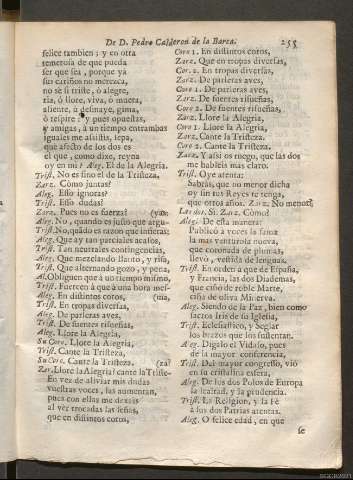 De D. Pedro Calderon de la Barca.
255
felice tambien; y en otra
temerosa de que pueda
ser que sea, porque yà
sus cariños no merezca,
no sè si triste, ò alegre,
ria, ò llore, viva, ò muera,
aliente, ò desmaye, gima,
ò respire; y pues opuestas,
y amigas, à un tiempo entrambas
iguales me assistis, sepa,
que afecto de los dos es
el que, como dixe, reyna
oy en mi? Aleg. El de la Alegria.
Trist. No es sino el de la Tristeza.
Zarz. Còmo juntas?
Aleg. Esso ignoras?
Trist. Esso dudas?
Zarz. Pues no es fuerza?
Aleg. No, quando es justo que argu-
Trist. No, quãdo es razon que infieras
Aleg. Que ay tan parciales acasos,
Trist. Tan neutrales contingencias,
Aleg. Que mezclando llanto, y risa,
Trist. Que alternando gozo, y pena,
Al. Obliguen que à un tiempo mismo,
Trist. Fuercen à que à una hora mes-
Aleg. En distintos coros, (ma,
Trist. En tropas diversas,
Aleg. De parleras aves,
Trist. De fuentes risueñas,
Aleg. Llore la Alegria,
Su Coro. Llore la Alegria,
Trist. Cante la Tristeza,
Su Coro. Cante la Tristeza. (za?
Zar. Llore la Alegria! cante la Triste-
En vez de aliviar mis dudas
vuestras voces, las aumentan,
pues con ellas me dexais
al vèr trocadas las señas,
que en distintos coros,
Coro 1. En distintos coros,
Zarz. Que en tropas diversas,
Cor. 2. En tropas diversas,
Zarz. De parleras aves,
Coro 1. De parleras aves,
Zarz. De fuentes risueñas,
Coro 2. De fuentes risueñas,
Zarz. Llore la Alegria,
Coro 1. Llore la Alegria,
Zarz. Cante la Tristeza.
Coro 2. Cante la Tristeza.
Zarz. Y assi os ruego, que las dos
me hableis mas claro.
Trist. Oye atenta:
Sabràs, que no menor dicha
oy sin tus Reyes te tenga,
que otros años. Zarz. No menor?
Las dos. Sì. Zarz. Còmo?
Aleg. De esta manera:
Publicò à voces la fama
la mas venturosa nueva,
que coronada de plumas,
llevò, vestida de lenguas.
Trist. En orden à que de España,
y Francia, las dos Diademas,
que ciñò de roble Marte,
ciña de oliva Minerva.
Aleg. Siendo de la Paz, bien como
sacros Iris de su Iglesia,
Trist. Eclesiastico, y Seglar
los brazos que los sustentan.
Aleg. Digalo el Vidaso, pues
de la mayor conferencia,
Trist. Del mayor congresso, viò
en su cristalina esfera,
Aleg. De los dos Polos de Europa
la lealtad, y la prudencia.
Trist. La Religion, y la Fè
à sus dos Patrias atentas.
Aleg. O felice edad, en que
se